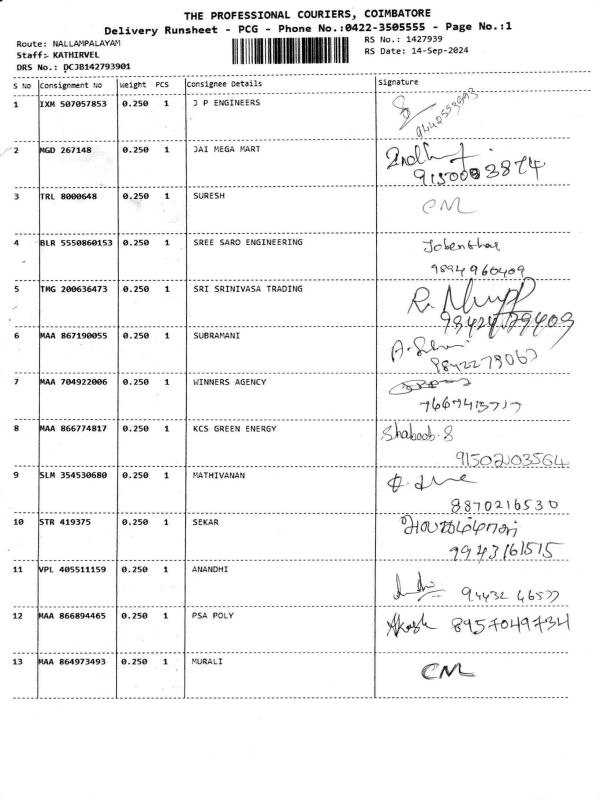 THE PROFESSIONAL COURIERS, COIMBATORE
Delivery Runsheet - PCG - Phone No.:0422-3505555 - Page No.:1
Route: NALLAMPALAYAM
Staff: KATHIRVEL
DRS No.: DCJB142793901
RS No.: 1427939
RS Date: 14-Sep-2024
S No Consignment No Weight PCS Consignee Details Signature
1 IXM 507057853 0.250 1 J P ENGINEERS
2 MGD 267148 0.250 1 JAI MEGA MART
3 TRL 8000648 0.250 1 SURESH
CNL
4 BLR 5550860153 0.250 1 SREE SARO ENGINEERING
9894960409
5 TMG 200636473 0.250 1 SRI SRINIVASA TRADING
6 MAA 867190055 0.250 1 SUBRAMANI
7 MAA 704922006 0.250 1 WINNERS AGENCY
8 MAA 866774817 0.250 1 KCS GREEN ENERGY
Shaboob.S
9150203564
9 SLM 354530680 0.250 1 MATHIVANAN
8870216530
10 STR 419375 0.250 1 SEKAR
9943161515
11 VPL 405511159 0.250 1 ANANDHI
12 MAA 866894465 0.250 1 PSA POLY
Akash 8957049734
13 MAA 864973493 0.250 1 MURALI
CNL